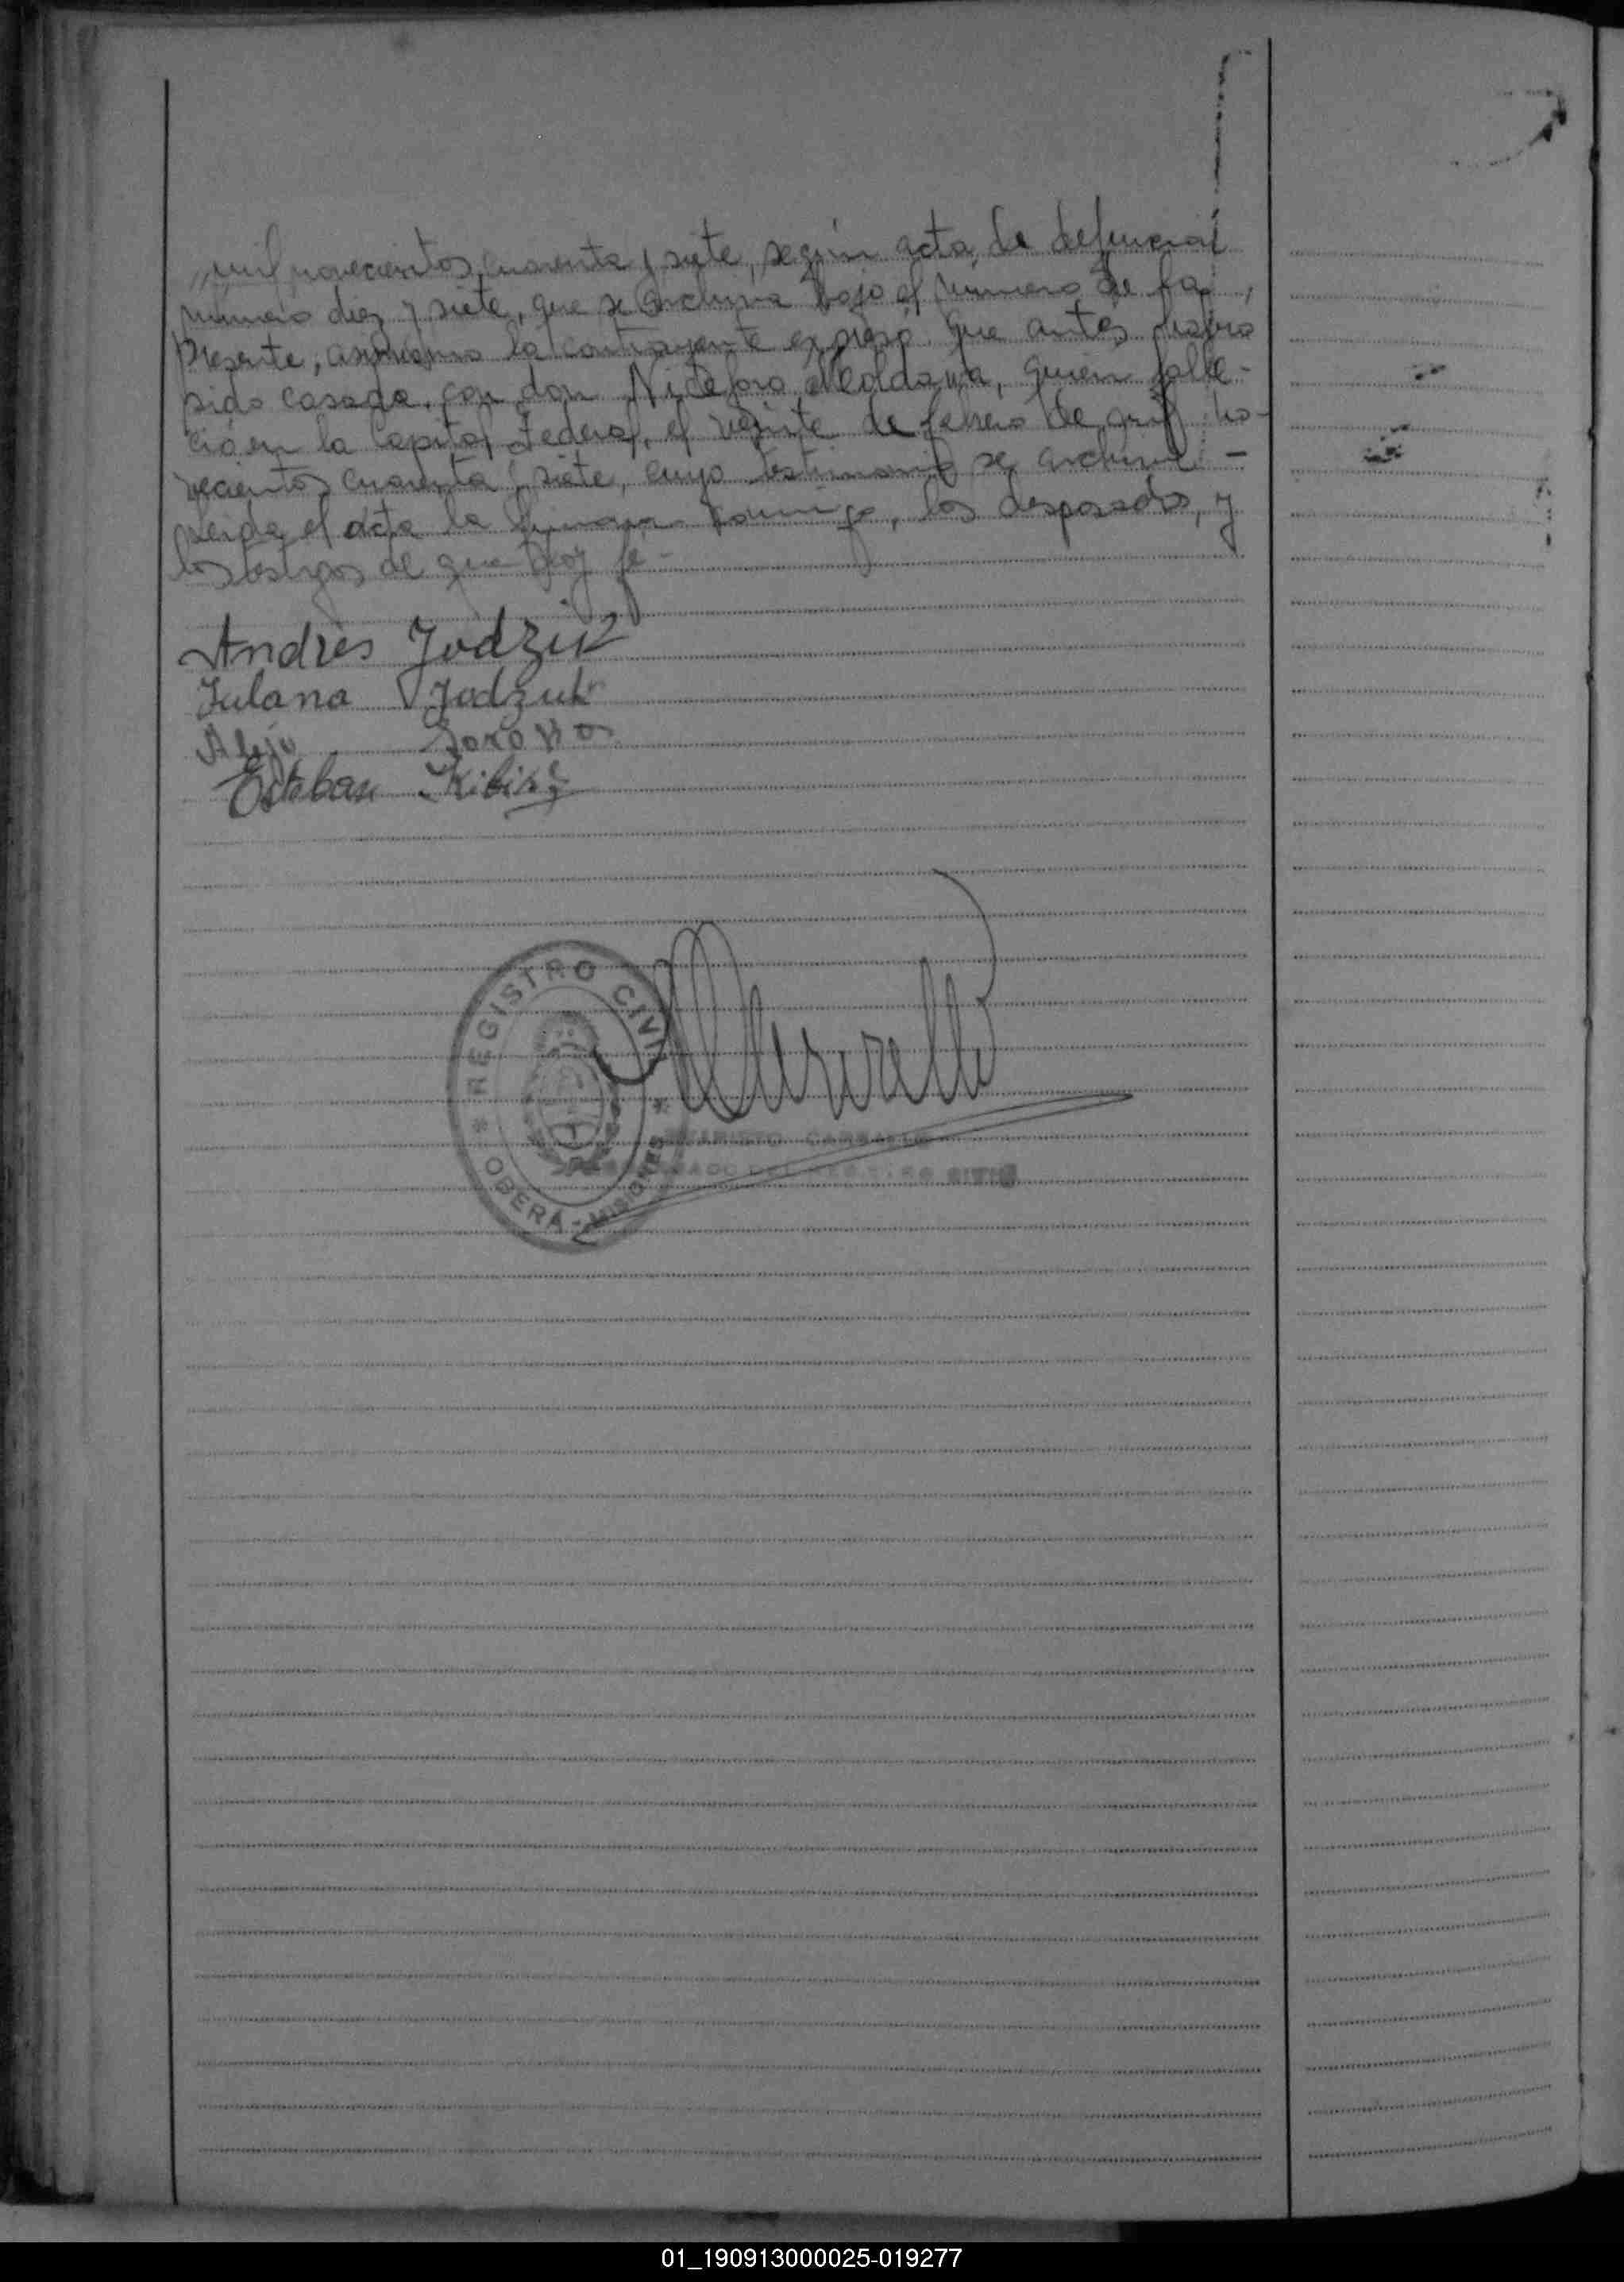 mil novecientos cuarenta y siete, según acta de defunción
número diez y siete, que se archiva bajo el número de la
presente, asimismo la contrayente expresó que antes habia
sido casada con don Niceforo Moldawa, quien falle-
ció en la Capital Federal, el veinte de febrero de mil no-
vecientos cuarenta y siete, cuyo testimonio se archiva -
Leida el acta la firman conmigo, los desposados, y
los testigos de que doy fe -
Andrés Jodzik
Juliana Jodzuk
Alejo
Esteban
REGISTRO CIVIL
OBERA - MISIONES
CARBALLO
ENCARGADO DEL REGISTRO CIVIL
01_190913000025-019277